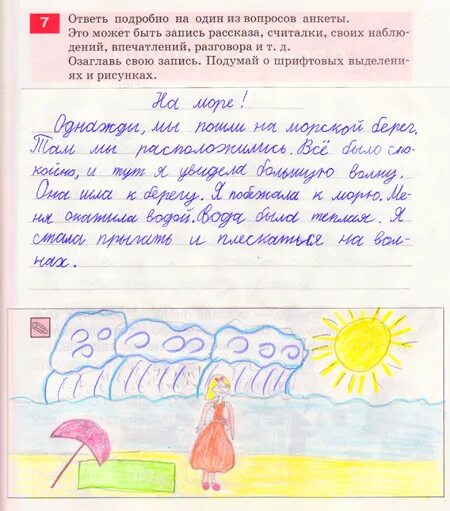 7 Ответь подробно на один из вопросов анкеты.
Это может быть запись рассказа, считалки, своих наблю-
дений, впечатлений, разговора и т. д.
Озаглавь свою запись. Подумай о шрифтовых выделени-
ях и рисунках.
На море!
Однажды, мы пошли на морской берег.
Там мы расположились. Всё было спо-
койно, и тут я увидела большую волну.
Она шла к берегу. Я побежала к морю. Ме-
ня окатила водой. Вода была теплая. Я
стала прыгать и плескаться на вол-
нах.